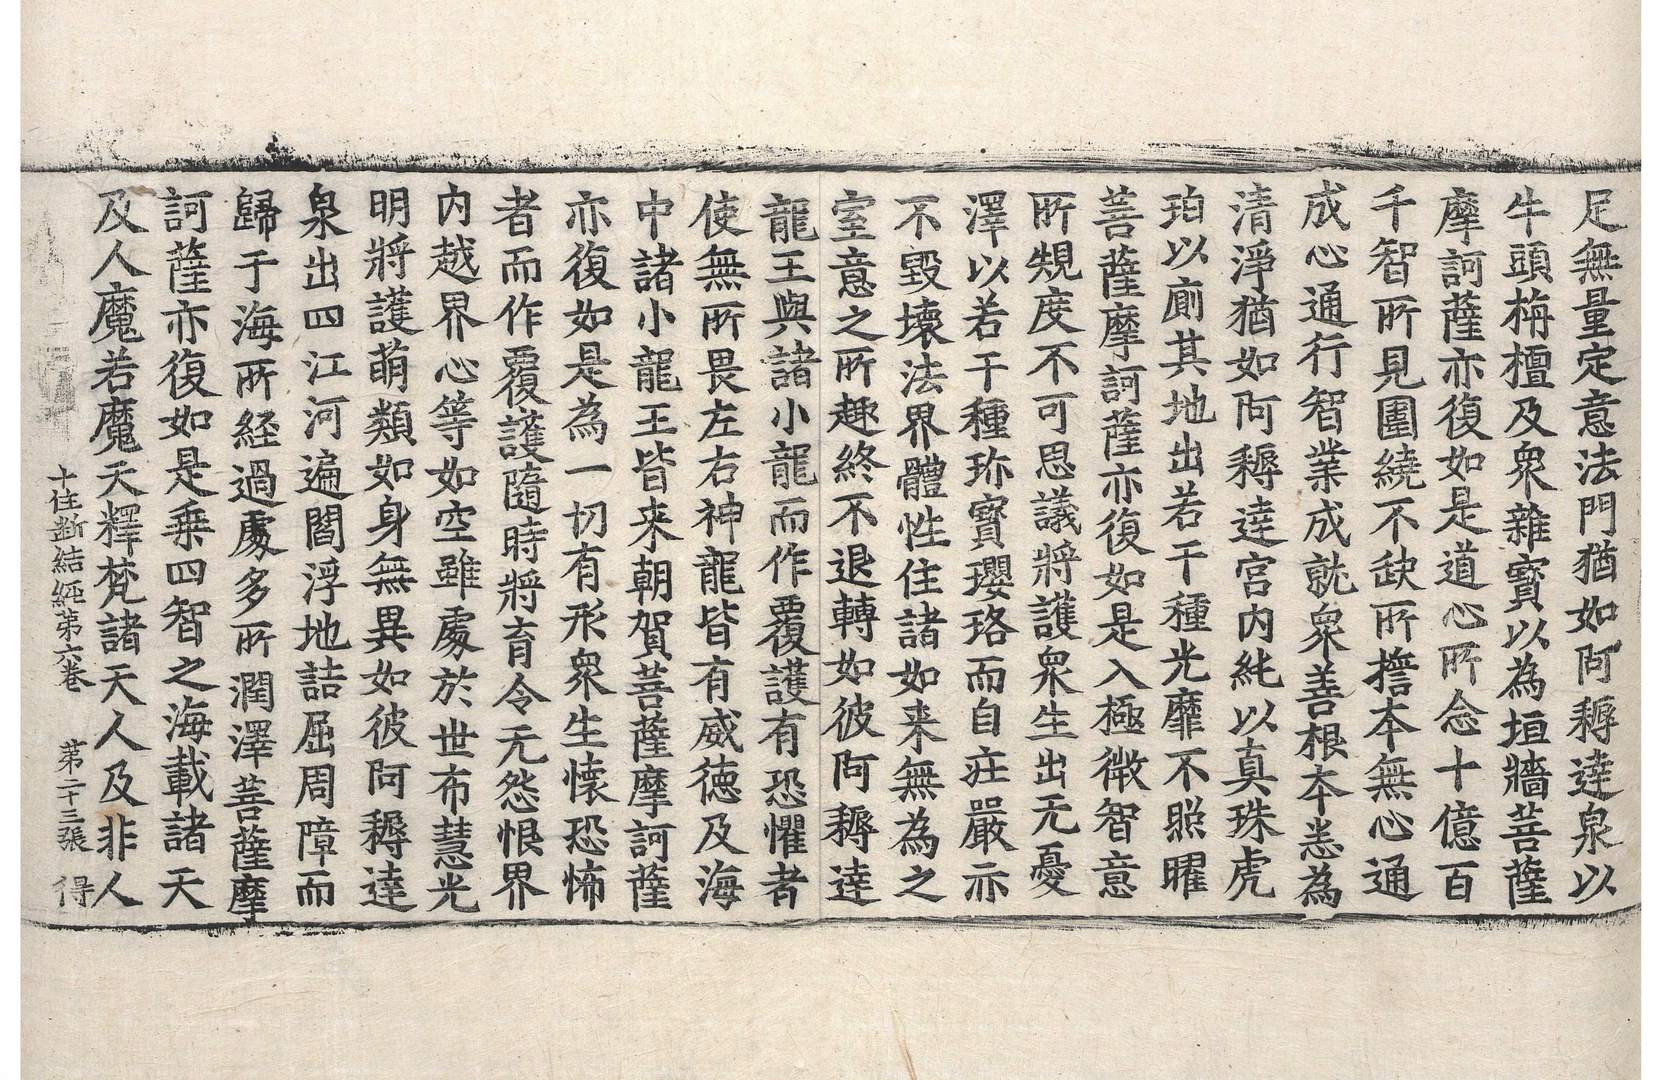 足無量定意法門猶如阿耨達泉以
牛頭栴檀及衆雜寶以為垣牆菩薩
摩訶薩亦復如是道心所念十億百
千智所見圍繞不缺所擔本無心通
成心通行智業成就衆善根本悉為
清淨猶如阿耨達宮内純以真珠虎
珀以廁其地出若干種光靡不照曜
菩薩摩訶薩亦復如是入極微智意
所覩度不可思議將護衆生出无憂
澤以若干種珎寶瓔珞而自莊嚴亦
不毀壞法界體性住諸如来無為之
室意之所趣終不退轉如彼阿耨達
龍王與諸小龍而作覆護有恐懼者
使無所畏左右神龍皆有威德及海
中諸小龍王皆来朝賀菩薩摩訶薩
亦復如是為一切有形衆生懷恐怖
者而作覆護隨時將育令无怨恨界
内越界心等如空雖處於世布慧光
明將護萌類如身無異如彼阿耨達
泉出四江河遍閻浮地詰屈周障而
歸于海所経過處多所潤澤菩薩摩
訶薩亦復如是乗四智之海載諸天
及人魔若魔天釋梵諸天人及非人
十住断結経第六卷 第二十三張 得